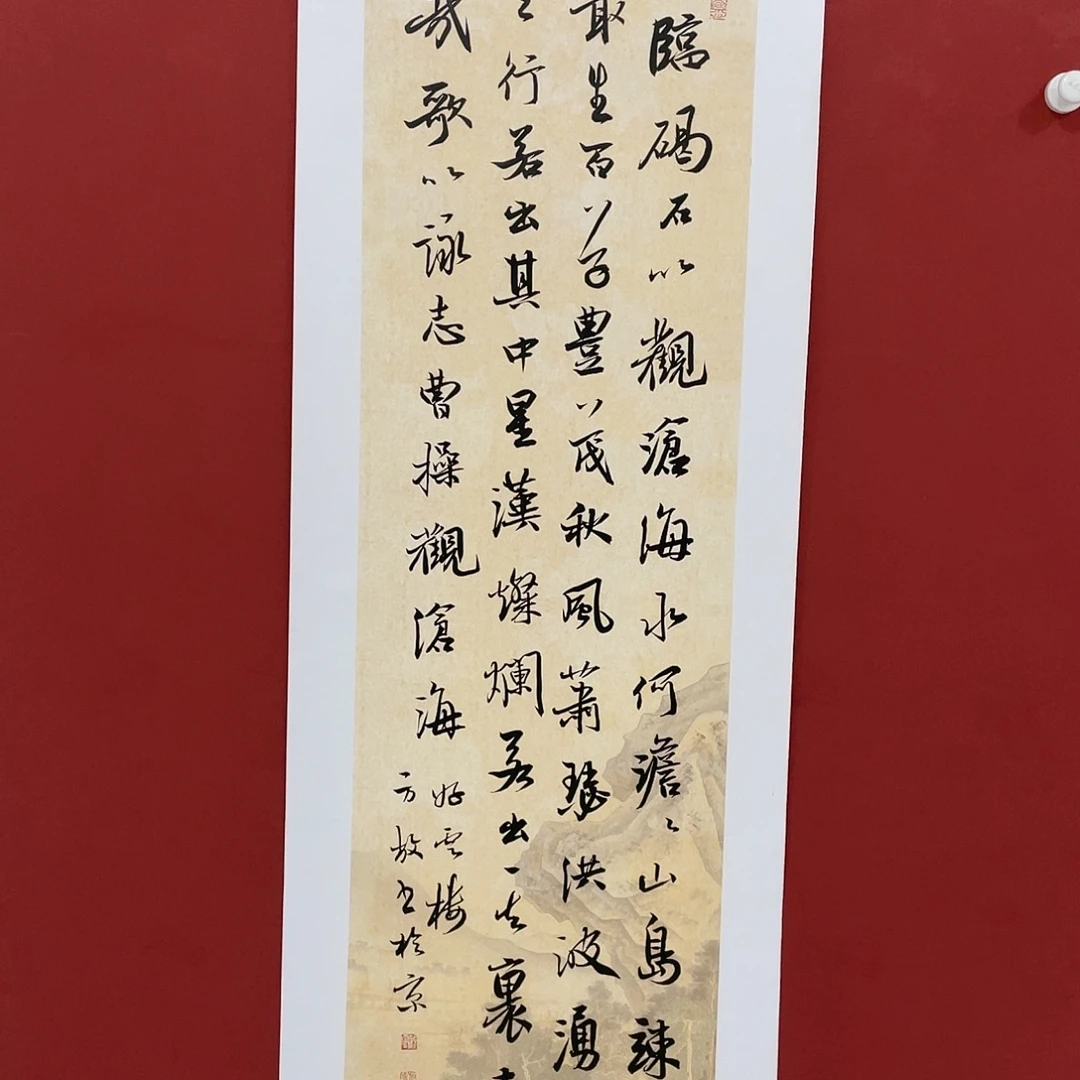 臨碣石以觀滄海水何澹〻山島竦
叢生百草豐茂秋風蕭瑟洪波湧
之行若出其中星漢燦爛若出其裏
哉歌以詠志曹操觀滄海
好雲樓
方放书於京